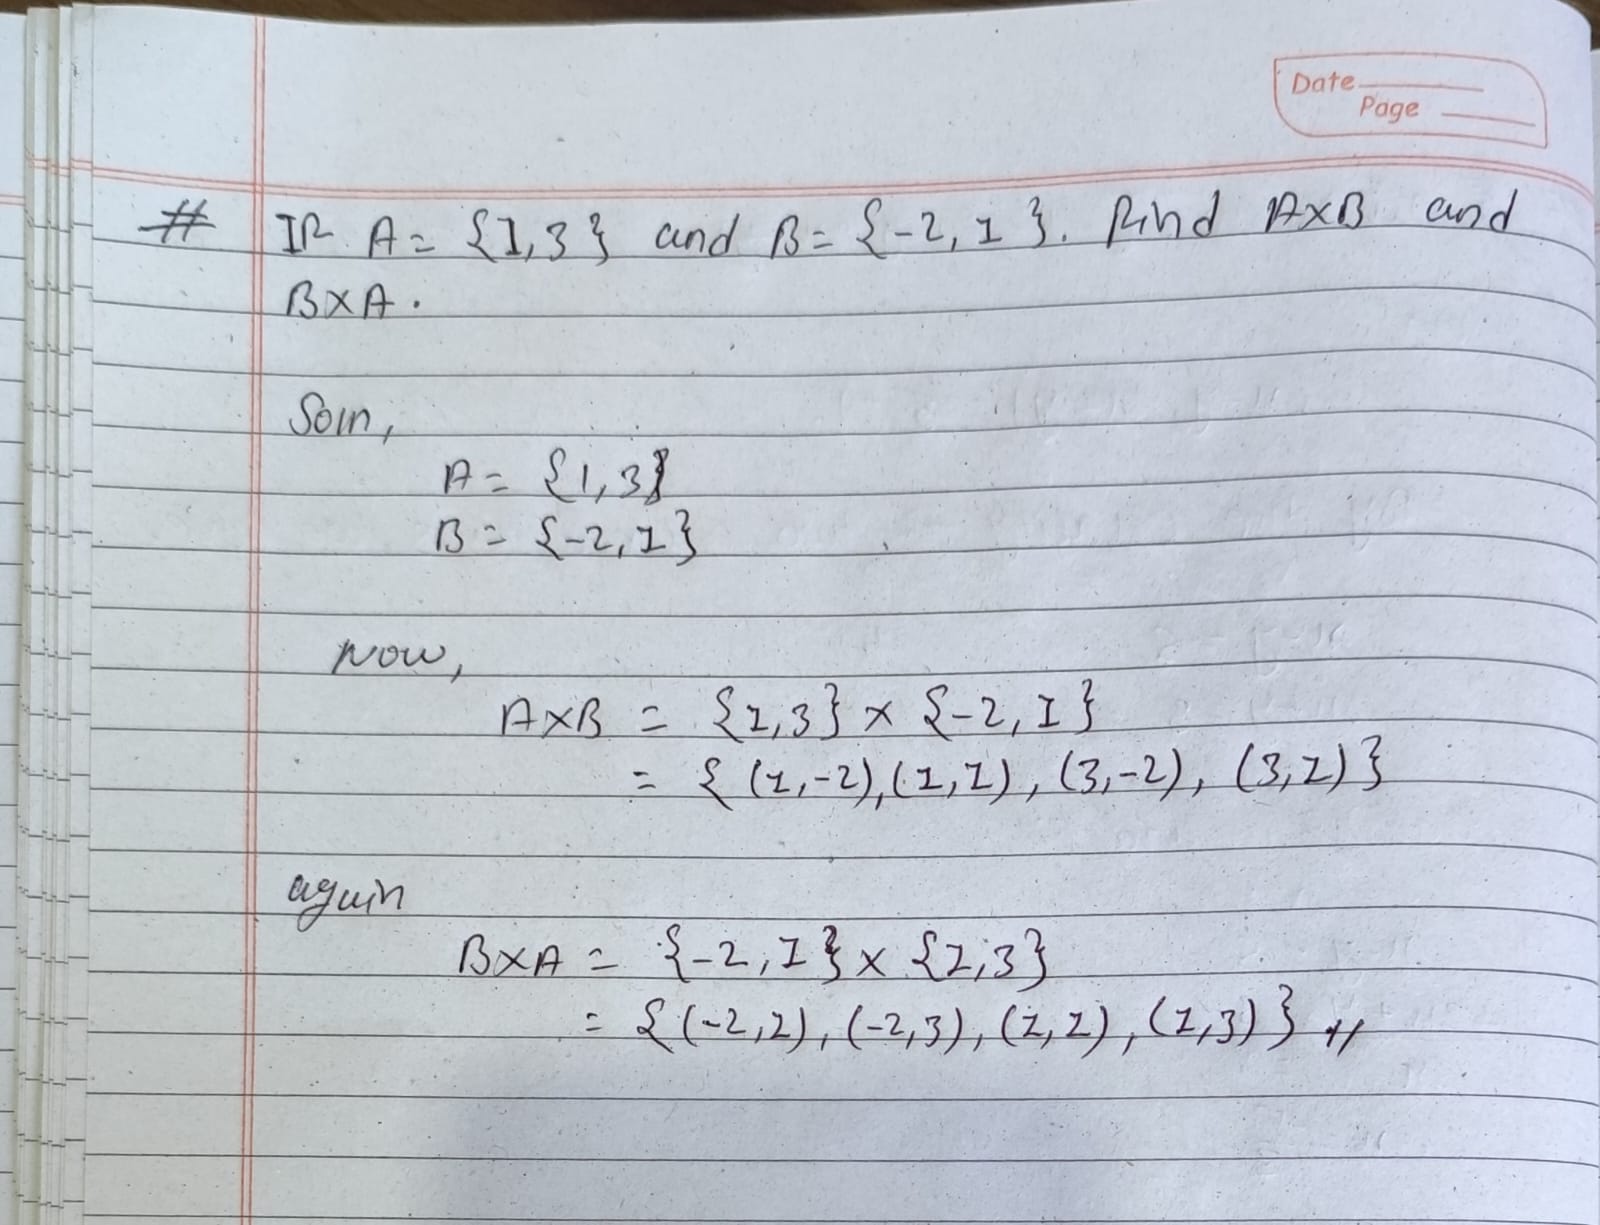 Date
Page
# If A = {1,3} and B = {-2, 1}. Find A×B and
B×A.
Soln,
A = {1,3}
B = {-2,1}
Now,
A×B = {1,3} × {-2, 1}
= { (1,-2), (1,1), (3,-2), (3,1)}
again
B×A = {-2,1} × {1,3}
= {(-2,1), (-2,3), (1,1), (1,3)} //